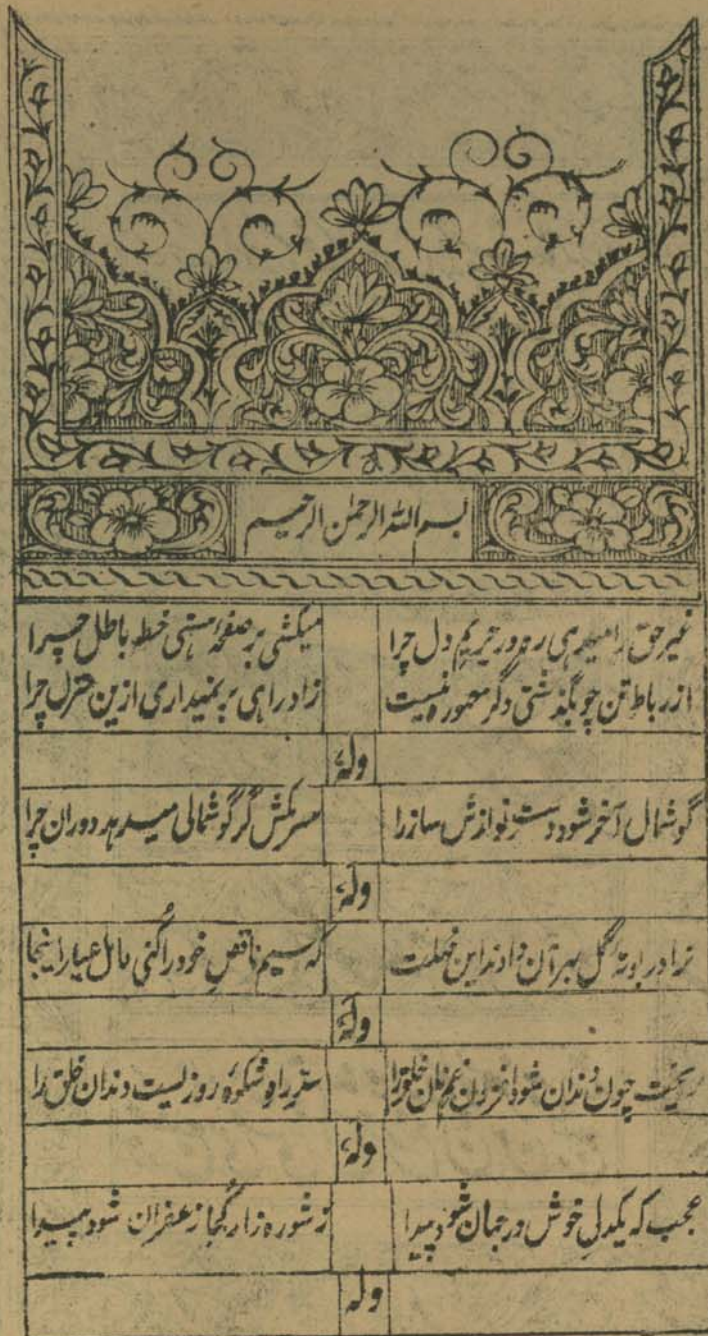 بسم الله الرحمن الرحیم
غیر حق را میدهی ره در حریم دل چرا میکشی بر صفحهٔ هستی خط باطل چرا
از رباط تن چو بگذشتی دگر معموره نیست زاد راهی بر نمیداری ازین منزل چرا
وله
گوشمال آخر شود دست نوازش ساز را سرمکش گر گوشمالی میدهد دوران چرا
وله
ترا در بوتهٔ گل بهر آن دادند این مهلت که سیم ناقص خود را کنی کامل عیار اینجا
وله
ریخت چون دندان شود افزون غم نان خلق را سد راه شکوهٔ روزیست دندان خلق را
وله
عجب که یکدل خوش در جهان شود پیدا ز شوره زار کجا زعفران شود پیدا
وله